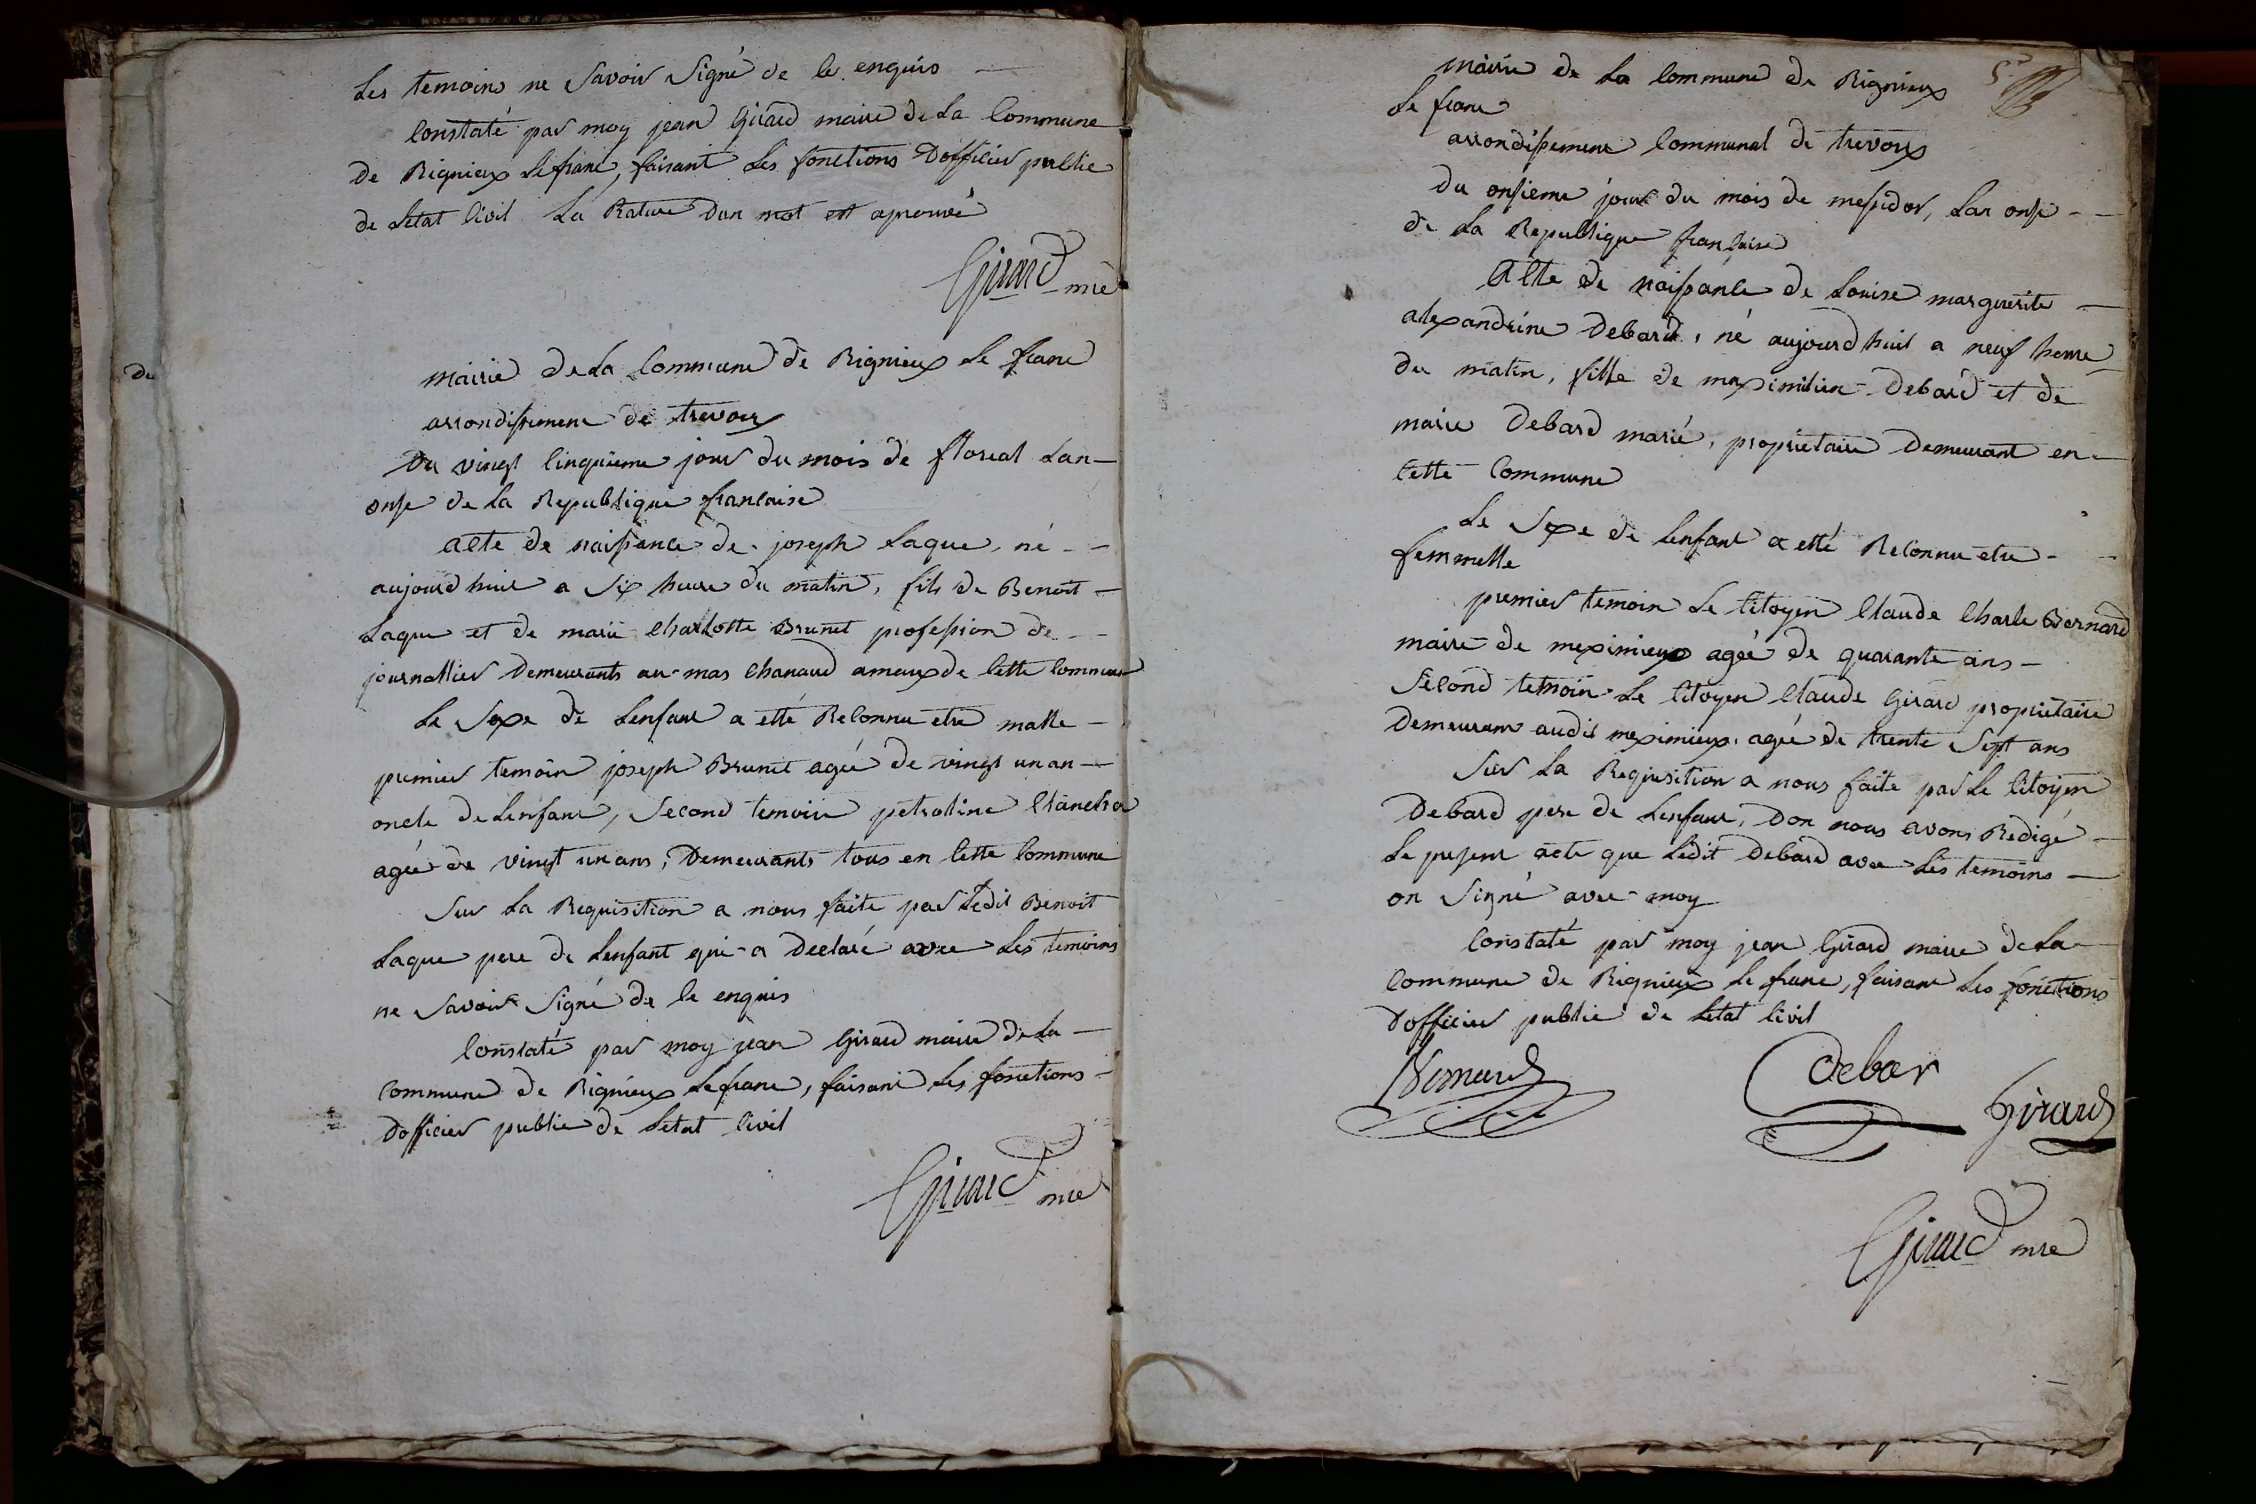 Les temoins ne Savoir Signé de ce enquis
Constaté par moy jean Girard maire de La Commune
de Rignieux Le franc, faisant Les fonctions Dofficier public
de Letat Civil La Rature Dun mot est aprouvé
Girard mre
mairie de La Commune de Rignieux Le franc
arrondissement de trevoux
Du vingt Cinquieme jour du mois de floreal Lan
onze de La Republique francaise
acte de naissance de joseph Laque, né
aujourdhuit a Six heure du matin, fils de Benoit
Laque et de marie Charlotte Brunet profession de
journallier Demeurants au mas Chanaud ameaux de Cette Commune
Le Sexe de Lenfant a etté Reconnu etre malle
premier temoin joseph Brunet agée de vingt un an
oncle de Lenfant, Second temoin
agée de vingt un ans, Demeurants tous en Cette Commune
Sur La Requisition a nous faite par Ledit Benoit
Laque pere de Lenfant qui a Declaré avec Les temoins
ne Savoir Signé de Ce enquis
Constaté par moy jean Girard maire de La
Commune de Rignieux Le franc, faisant Les fonctions
Dofficier public de Letat Civil
Girard mre
Du
5.e
mairie de La Commune de Rignieux
Le franc
arrondissement Communal de trevoux
Du onzieme jour du mois de messidor, Lan onze
de La Republique francaise
Acte de naissance de Louise marguerite
alexandrine Debard, né aujourdhuit a neuf heure
du matin, fille de maximilien Debard et de
marie Debard marié, proprietaire Demeurant en
Cette Commune
Le Sexe de Lenfant a etté Reconnu etre
femmelle
premier temoin Le Citoyen Claude Charle Bernard
maire de meximieux agée de quarante ans
Second temoin Le Citoyen Claude Girard proprietaire
Demeurant audit meximieux, agée de trente Sept ans
Sur La Requisition a nous faite par Le Citoyen
Debard pere de Lenfant, Don nous avons Redigé
Le present acte que Ledit Debard avec Les temoins
on Signé avec moy
Constaté par moy jean Girard maire de La
Commune de Rignieux Le franc, faisant Les fonctions
Dofficier public de Letat Civil
Bernard
Debar
Girard
Girard mre